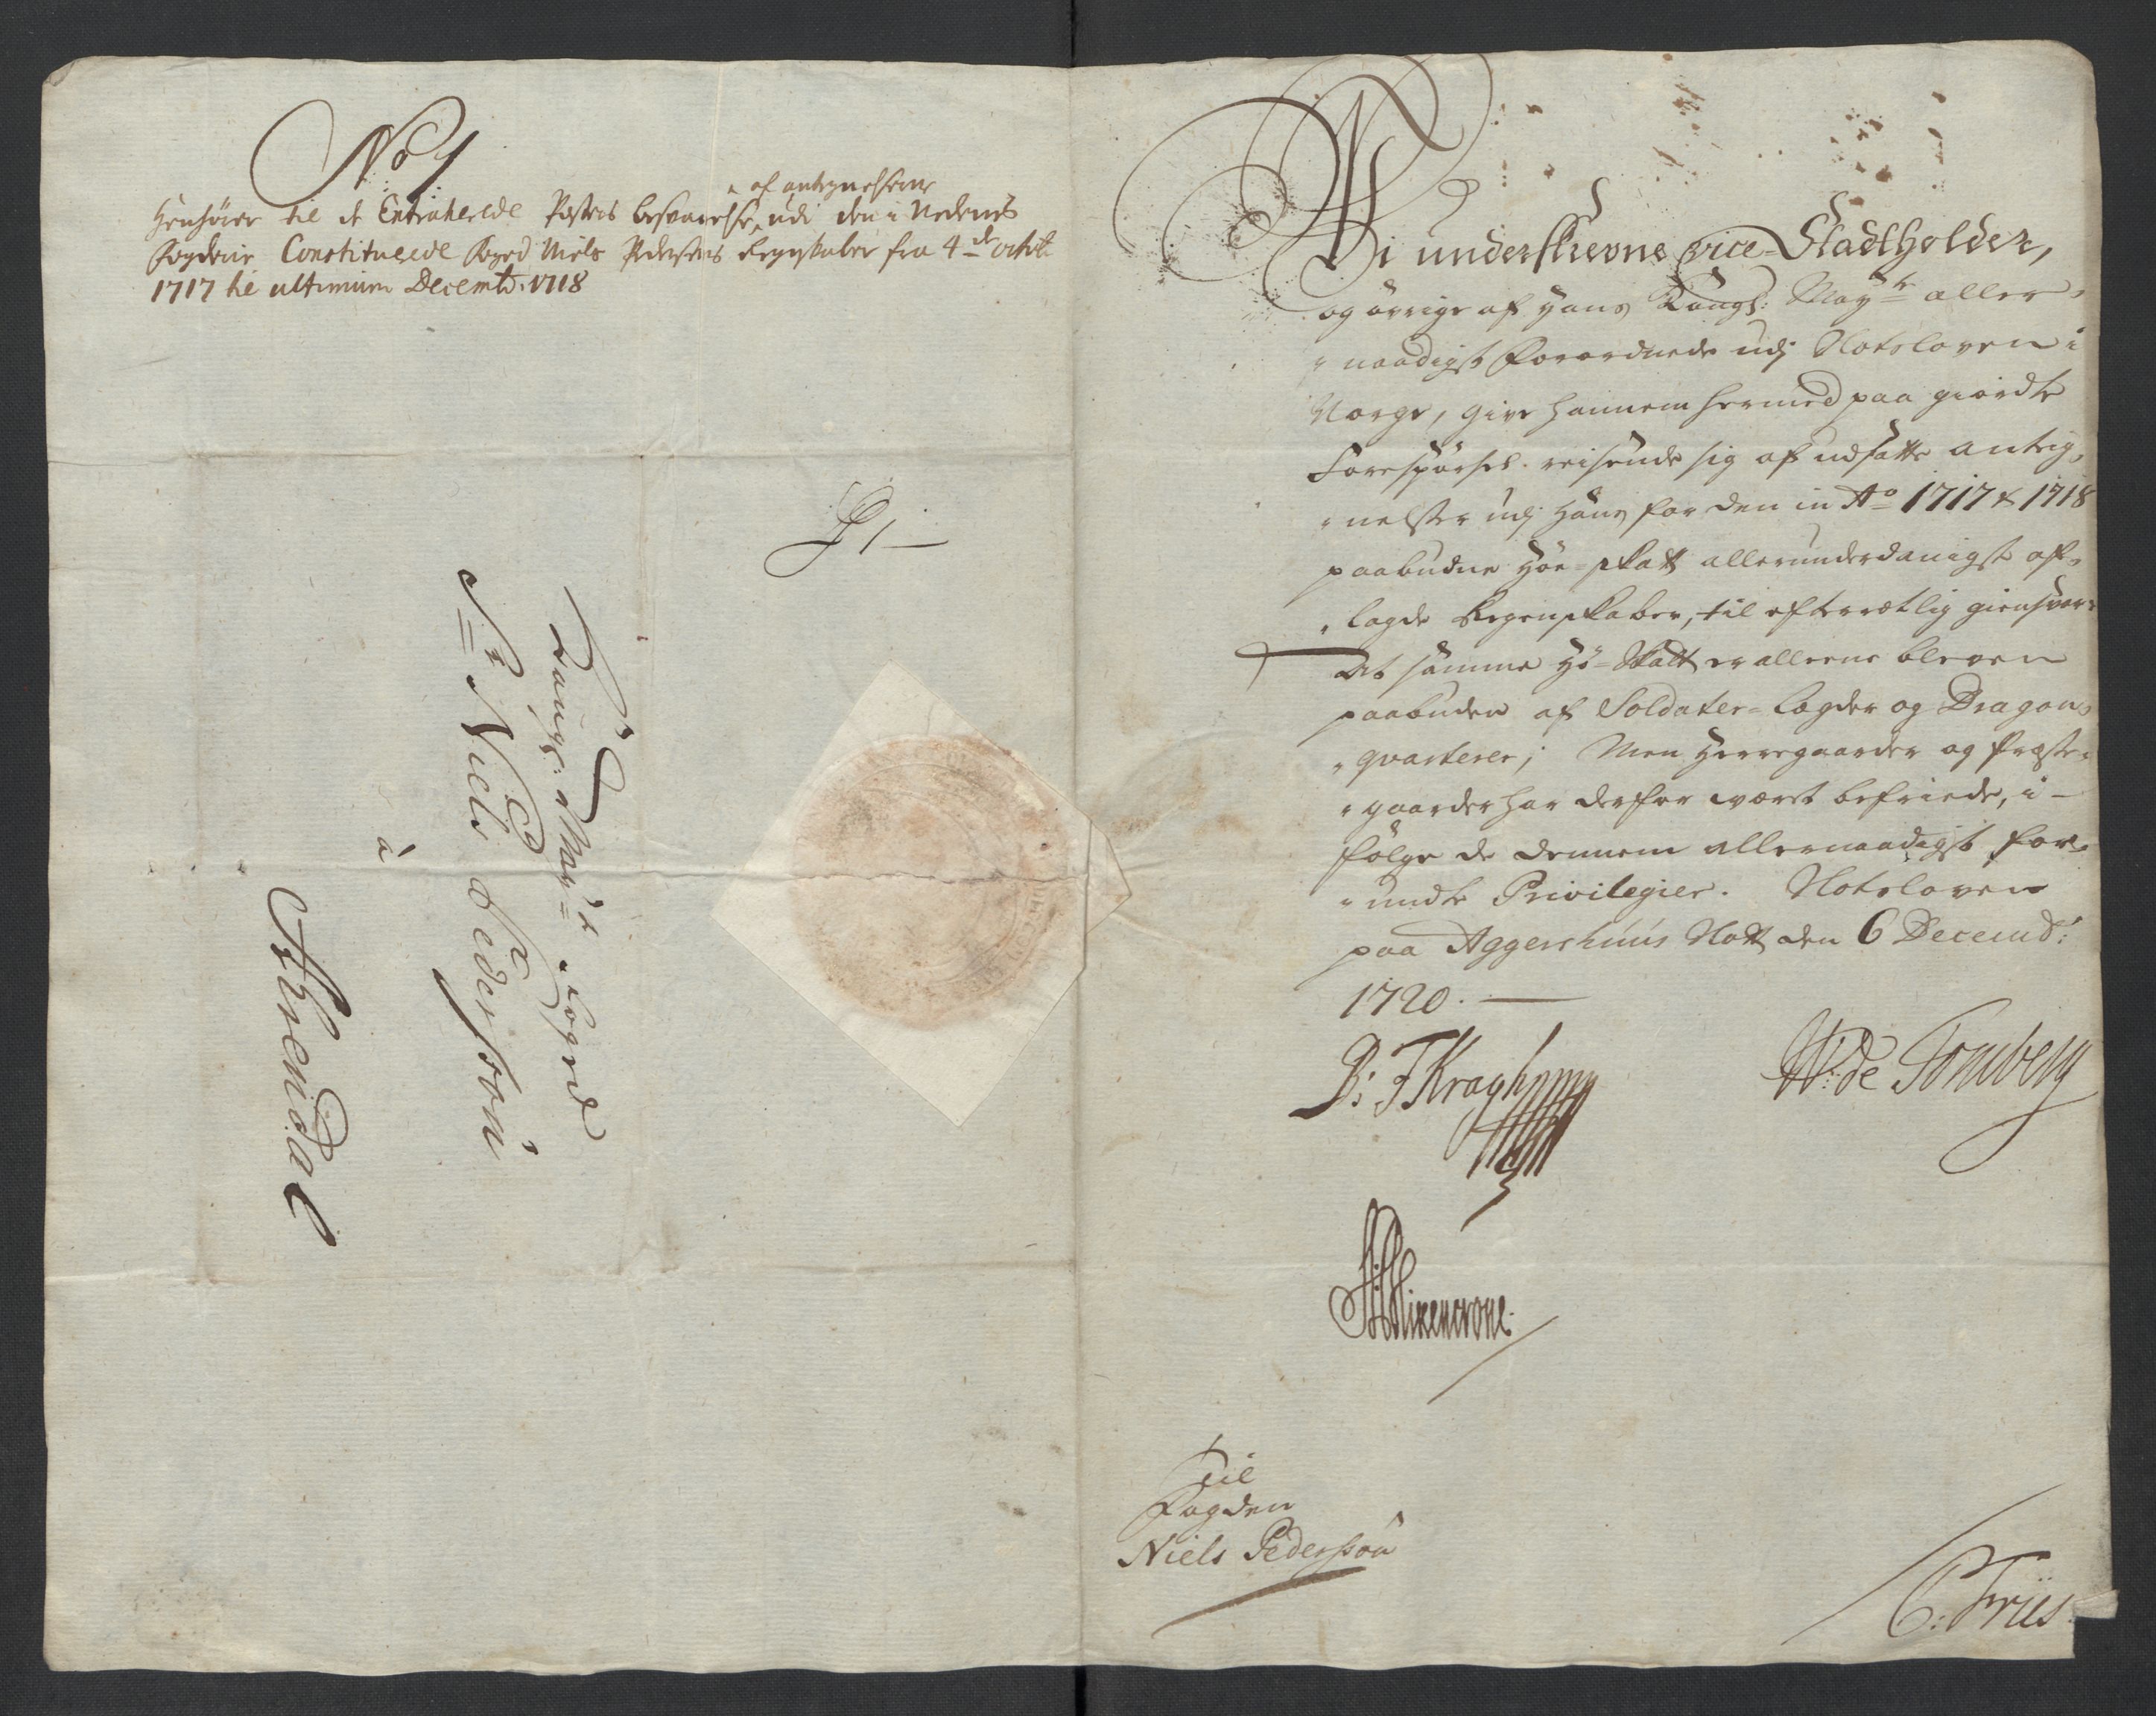 No 1
af antegnelserne
Henhører til de Extraherede Posters besvarelse, udi den i Nedenes
Fogderie Constituerede Foged Niels Pedersens Regnskaber fra 4de octobr
1717 til ultimum Decembr: 1718
Kongl: May:ts Foged
Sr Niels Pederson
à
Ahrendal
Vi underskrevne vice-Stadtholder,
og øvrige af Hans Kongl: Mayts aller-
naadigst Forordnede udj Slotsloven i
Norge, give hannem hermed paa giordte
Forespørsel reisende sig af udsatte anteg-
nelser udj Hans for den in Ao 1717 & 1718
paabudne Høe-skatt allerunderdanigst af-
lagde Regenskaber, til efterretlig giensvar
At samme Hø-Skatt er alleene bleven
paabuden af Soldater-Lægder og Dragon
qvarterer; Men Herregaarder og Præste-
gaarder har derfor været befriede, i-
følge de dennem allernaadigst for-
undte Privilegier. Slotsloven
paa Aggershuus Slott den 6 Decembr:
1720.
B: F Kragh
W: de Tonsberg
Mixencrone
Til
Fogden
Niels Pederson
C: Friis